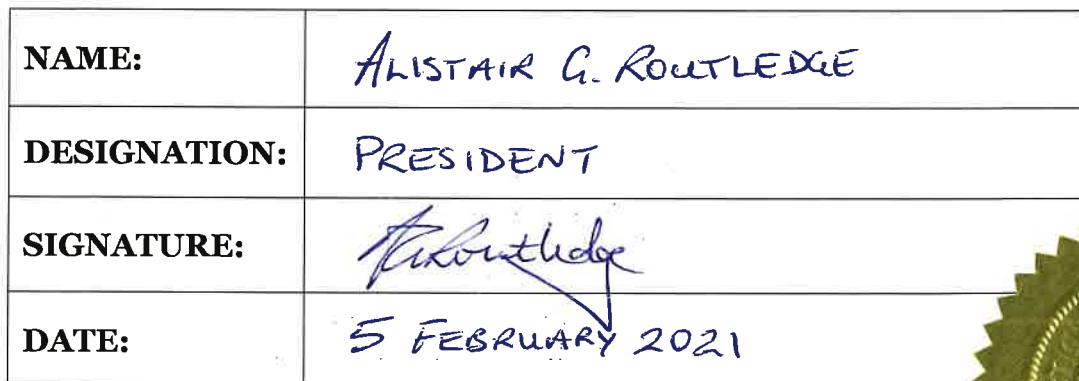 NAME: ALISTAIR G. ROUTLEDGE
DESIGNATION: PRESIDENT
SIGNATURE: AGRoutledge
DATE: 5 FEBRUARY 2021